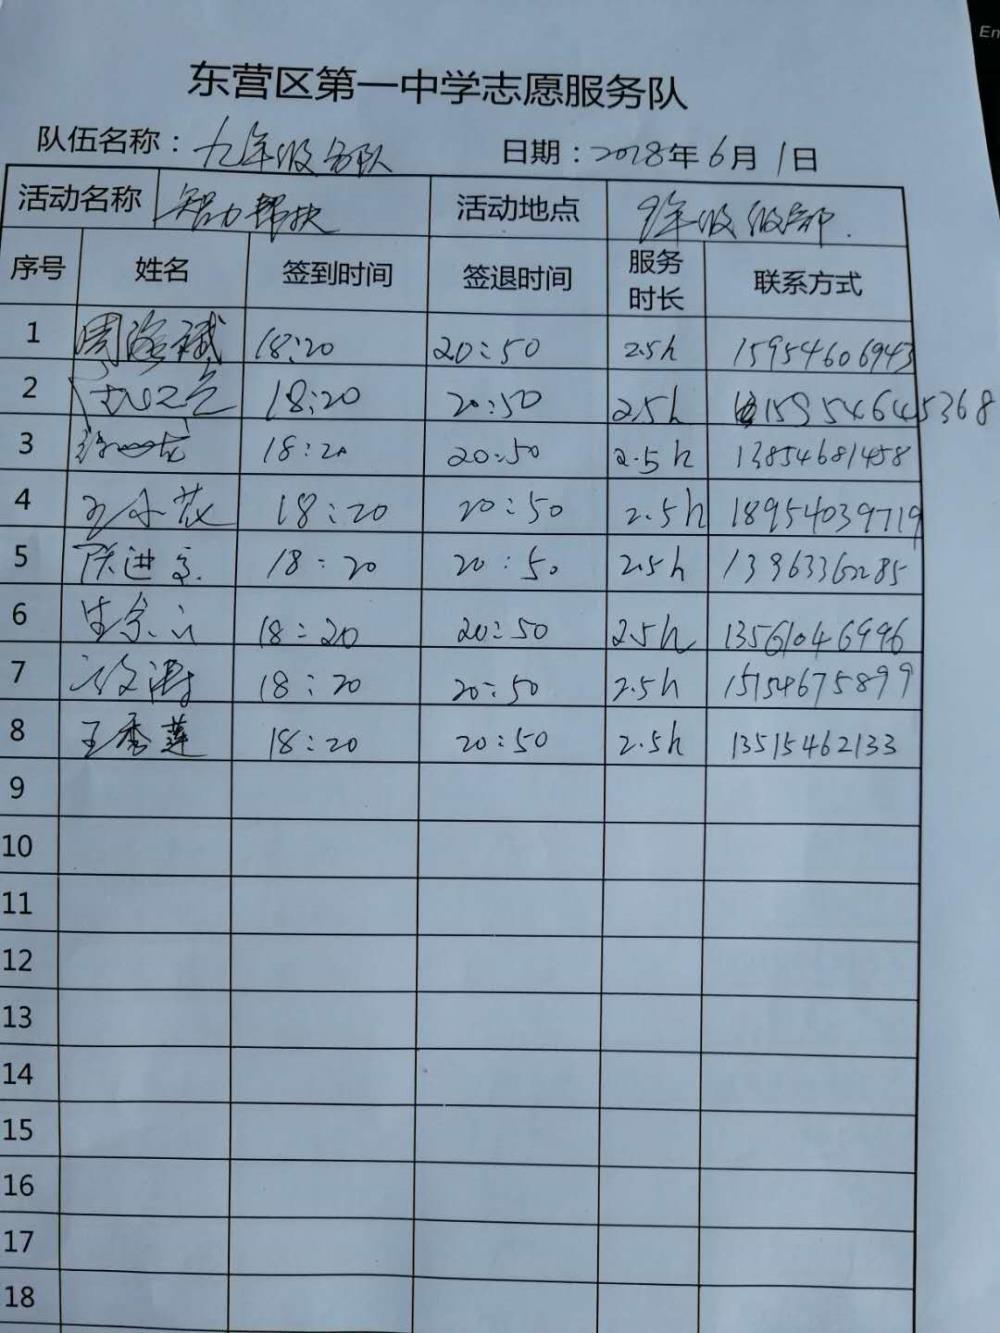 En
东营区第一中学志愿服务队
队伍名称：九年级务队 日期：2018年6月1日
活动名称 智力帮扶 活动地点 9年级级部.
序号 姓名 签到时间 签退时间 服务时长 联系方式
1 周海斌 18:20 20:50 2.5h 15954606943
2 18:20 20:50 2.5h 15954645368
3 18:20 20:50 2.5h 13854681458
4 王小花 18:20 20:50 2.5h 18954039719
5 18:20 20:50 2.5h 13963362285
6 18:20 20:50 2.5h 13561046996
7 18:20 20:50 2.5h 15154675899
8 王秀莲 18:20 20:50 2.5h 13515462133
9
10
11
12
13
14
15
16
17
18